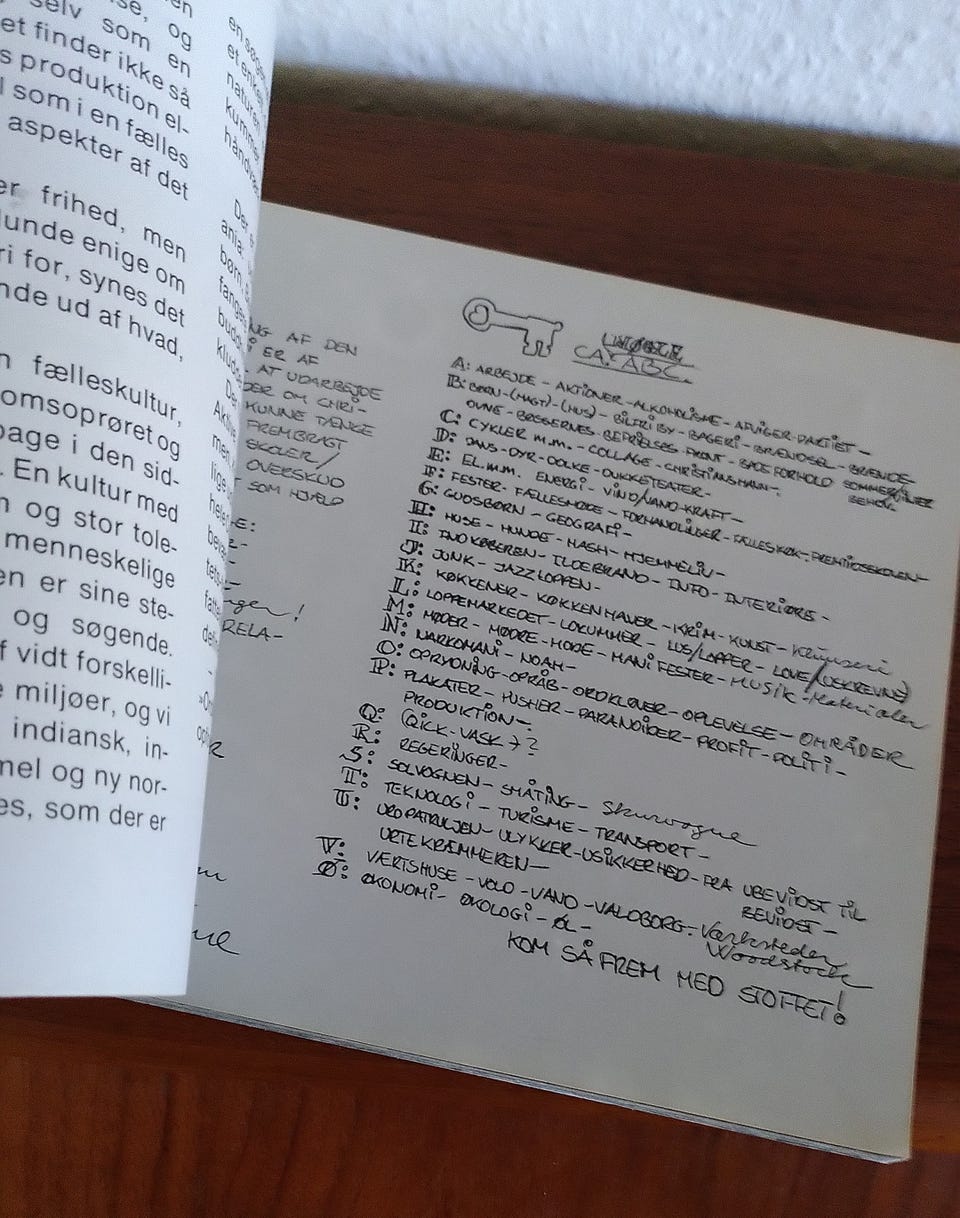 selv som en
et finder ikke så
s produktion el-
l som i en fælles
aspekter af det
er frihed, men
lunde enige om
ri for, synes det
nde ud af hvad,
n fælleskultur,
omsoprøret og
bage i den sid-
. En kultur med
n og stor tole-
menneskelige
en er sine ste-
og søgende.
f vidt forskelli-
e miljøer, og vi
indiansk, in-
mel og ny nor-
es, som der er
NG AF DEN
ER AF
AT UDARBEJDE
DER OM CHRI-
KUNNE TÆNKE
FREMBRAGT
SKOLER/
OVERSKUD
T SOM HJÆLP
RELA-
CA: ABC.
A: ARBEJDE - AKTIONER - ALKOHOLISME - AFVIGER-PARTIET -
B: BØRN - (MAGT) - (HUS) - BILFRI BY - BAGERI - BRÆNDSEL - BRÆNDE-
OVNE - BØSSERNES BEFRIELSES FRONT - BADEFORHOLD
C: CYKLER M.M. - COLLAGE - CHRISTIANSHAVN -
D: DANS - DYR - DOLKE - DUKKETEATER -
E: EL. M.M. ENERGI - VIND/VAND-KRAFT -
F: FESTER - FÆLLESMØDE - FORHANDLINGER - FÆLLESKØK - FREMTIDSSKOLEN
G: GUDSBØRN - GEOGRAFI -
H: HUSE - HUNDE - HASH - HJEMMELIV -
I: INDKØBEREN - ILDEBRAND - INFO - INTERIØRS -
J: JUNK - JAZZLOPPEN -
K: KØKKENER - KØKKENHAVER - KRIM - KUNST -
L: LOPPEMARKEDET - LOKUMMER - LUS/LOPPER - LOVE/(USKREVNE)
M: MØDER - MØDRE - MODE - MANIFESTER - MUSIK - Materialer
N: NARKOMANI - NOAH -
O: OPRYDNING - OPRÅB - ORDKLØVER - OPLEVELSE - OMRÅDER
P: PLAKATER - PUSHER - PARANOIDER - PROFIT - POLITI -
PRODUKTION -
Q: (QICK-VASK → ?
R: REGERINGER -
S: SOLVOGNEN - SMÅTING - Skurvogne
T: TEKNOLOGI - TURISME - TRANSPORT -
U: UROPATRULJEN - ULYKKER - USIKKERHED - FRA UBEVIDST TIL
BEVIDST -
URTEKRÆMMEREN -
V: VÆRTSHUSE - VOLD - VAND - VALDBORG - Værksteder
Woodstock
Ø: ØKONOMI - ØKOLOGI - ØL -
KOM SÅ FREM MED STOFFET!